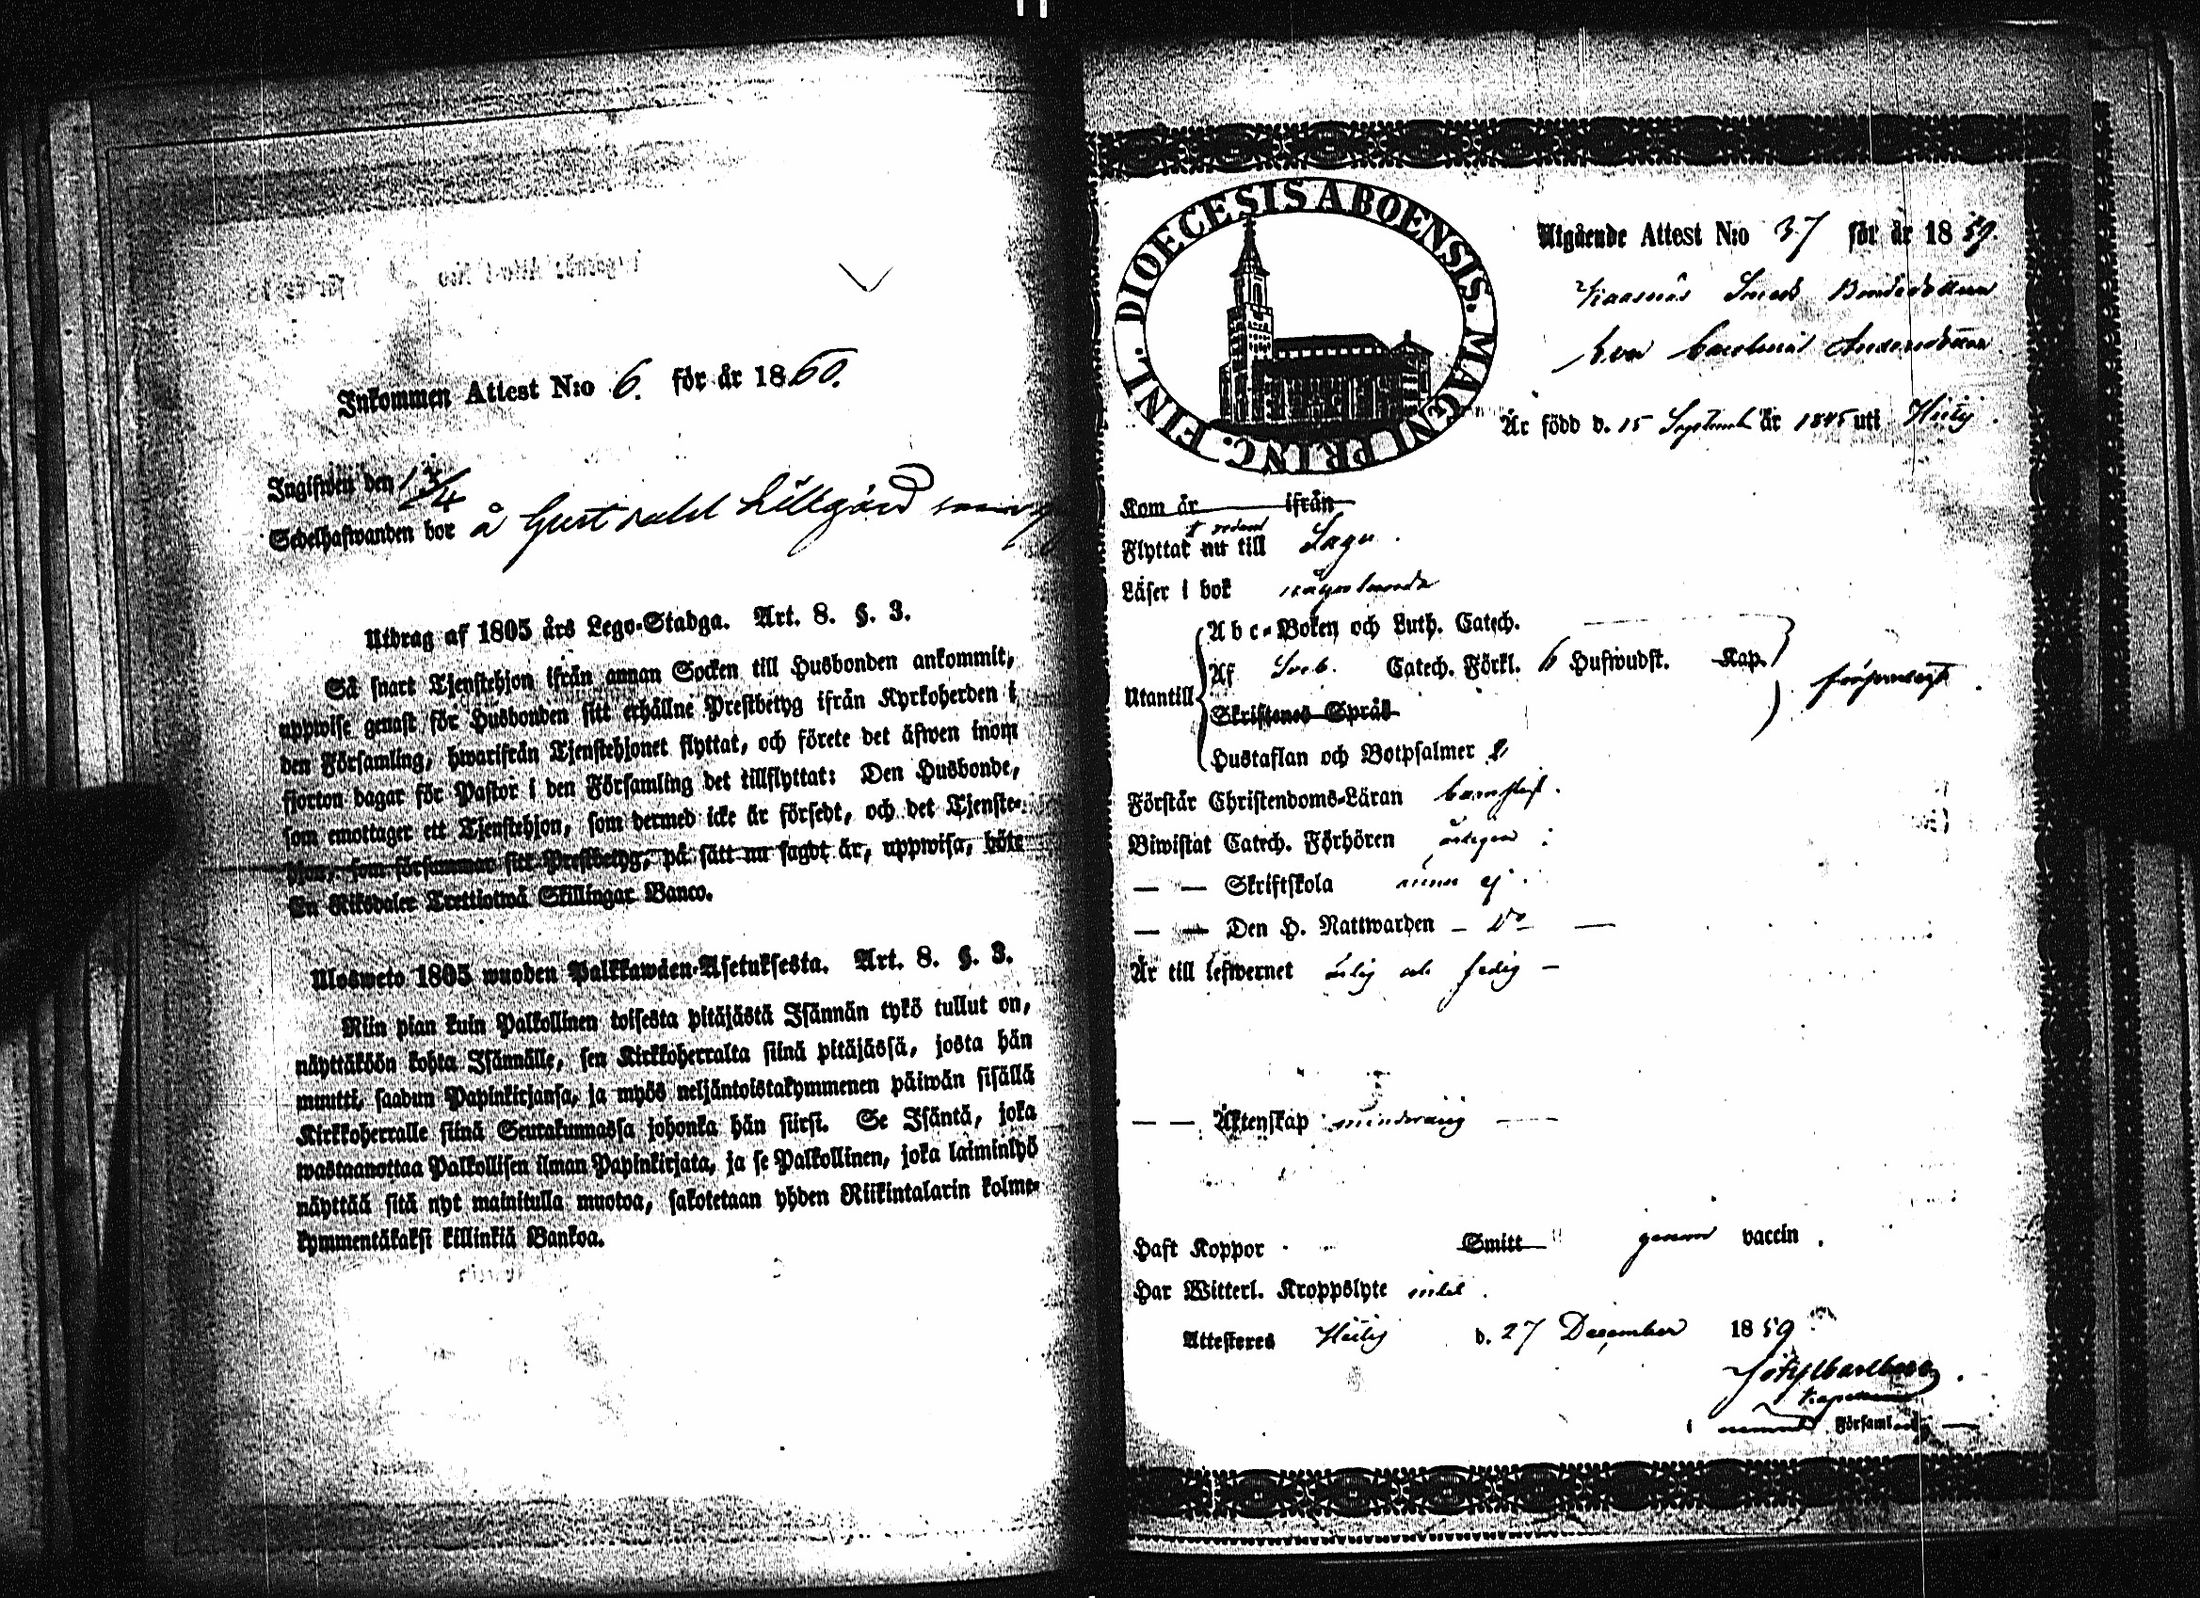 Inkommen Attest N:o 6. för år 1860.
Ingifwen den 13/4
Sedelhafwanden bor å Gustafdal Lillgård
Utdrag af 1805 års Lego-Stadga. Art. 8. §. 3.
Så snart Tjenstehjon ifrån annan Socken till Husbonden ankommit,
uppwise genast för Husbonden sitt erhållne Prestbetyg ifrån Kyrkoherden i
den Församling, hwarifrån Tjenstehjonet flyttat, och förete det äfwen inom
fjorton dagar för Pastor i den Församling det tillflyttat: Den Husbonde,
som emottager ett Tjenstehjon, som dermed icke är försedt, och det Tjenste-
hjon, som försummar sitt Prestbetyg, på sätt nu sagdt är, uppwisa, böte
En Riksdaler Trettiotwå Skillingar Banco.
Ulosweto 1805 wuoden Palkkawäen-Asetuksesta. Art. 8. §. 3.
Niin pian kuin Palkollinen toisesta pitäjästä Isännän tykö tullut on,
näyttäköön kohta Isännälle, sen Kirkkoherralta siinä pitäjässä, josta hän
muutti, saadun Papinkirjansa, ja myös neljäntoistakymmenen päiwän sisällä
Kirkkoherralle siinä Seurakunnassa johonka hän siirsi. Se Isäntä, joka
wastaanottaa Palkollisen ilman Papinkirjata, ja se Palkollinen, joka laiminlyö
näyttää sitä nyt mainitulla muotoa, sakotetaan yhden Riikintalarin kolme-
kymmentäkaksi killinkiä Bankoa.
DIOECESIS ABOENSIS. MAGNI PRINC. FINL.
Utgående Attest N:o 37 för år 1859.
Smeds Bondedottren
Eva Carolina Andersdotter
Är född d. 15 September år 1845 uti Hitis.
Kom år ifrån
Flyttat nu till Sagu.
Läser i bok någorlunda
Utantill
Abc-Boken och Luth. Catech.
Af Sveb. Catech. Förkl. 6 Hufwudst. Kap.
Skriftenes Språk
Hustaflan och Botpsalmer
Förstår Christendoms-Läran barnsligt.
Biwistat Catech. Förhören årligen
— — Skriftskola ännu ej.
— — Den H. Nattwarden — Do —
Är till lefwernet ärlig och sedig —
— — Äktenskap minderårig —
Haft Koppor Smitt genom vaccin.
Har Witterl. Kroppslyte intet.
Attesteres Hitis d. 27 December 1859
i nämnde Församling —